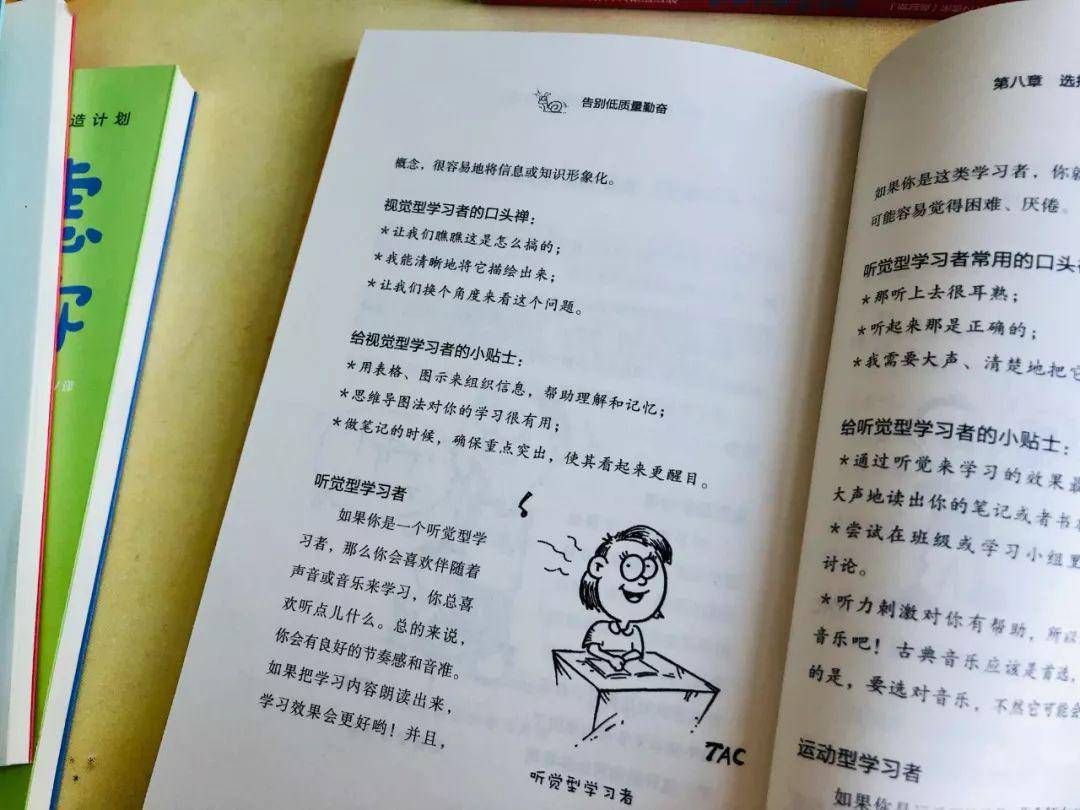 造计划
虑
告别低质量勤奋
概念，很容易地将信息或知识形象化。
视觉型学习者的口头禅：
*让我们瞧瞧这是怎么搞的；
*我能清晰地将它描绘出来；
*让我们换个角度来看这个问题。
给视觉型学习者的小贴士：
*用表格、图示来组织信息，帮助理解和记忆；
*思维导图法对你的学习很有用；
*做笔记的时候，确保重点突出，使其看起来更醒目。
听觉型学习者
如果你是一个听觉型学
习者，那么你会喜欢伴随着
声音或音乐来学习，你总喜
欢听点儿什么。总的来说，
你会有良好的节奏感和音准。
如果把学习内容朗读出来，
学习效果会更好哟！并且，
TAC
听觉型学习者
第八章 选
如果你是这类学习者，你就
可能容易觉得困难、厌倦。
听觉型学习者常用的口头禅
*那听上去很耳熟；
*听起来那是正确的；
*我需要大声、清楚地把它
给听觉型学习者的小贴士：
*通过听觉来学习的效果最
大声地读出你的笔记或者书
*尝试在班级或学习小组里
讨论。
*听力刺激对你有帮助，所以
音乐吧！古典音乐应该是首选，
的是，要选对音乐，不然它可能会
运动型学习者
如果你是